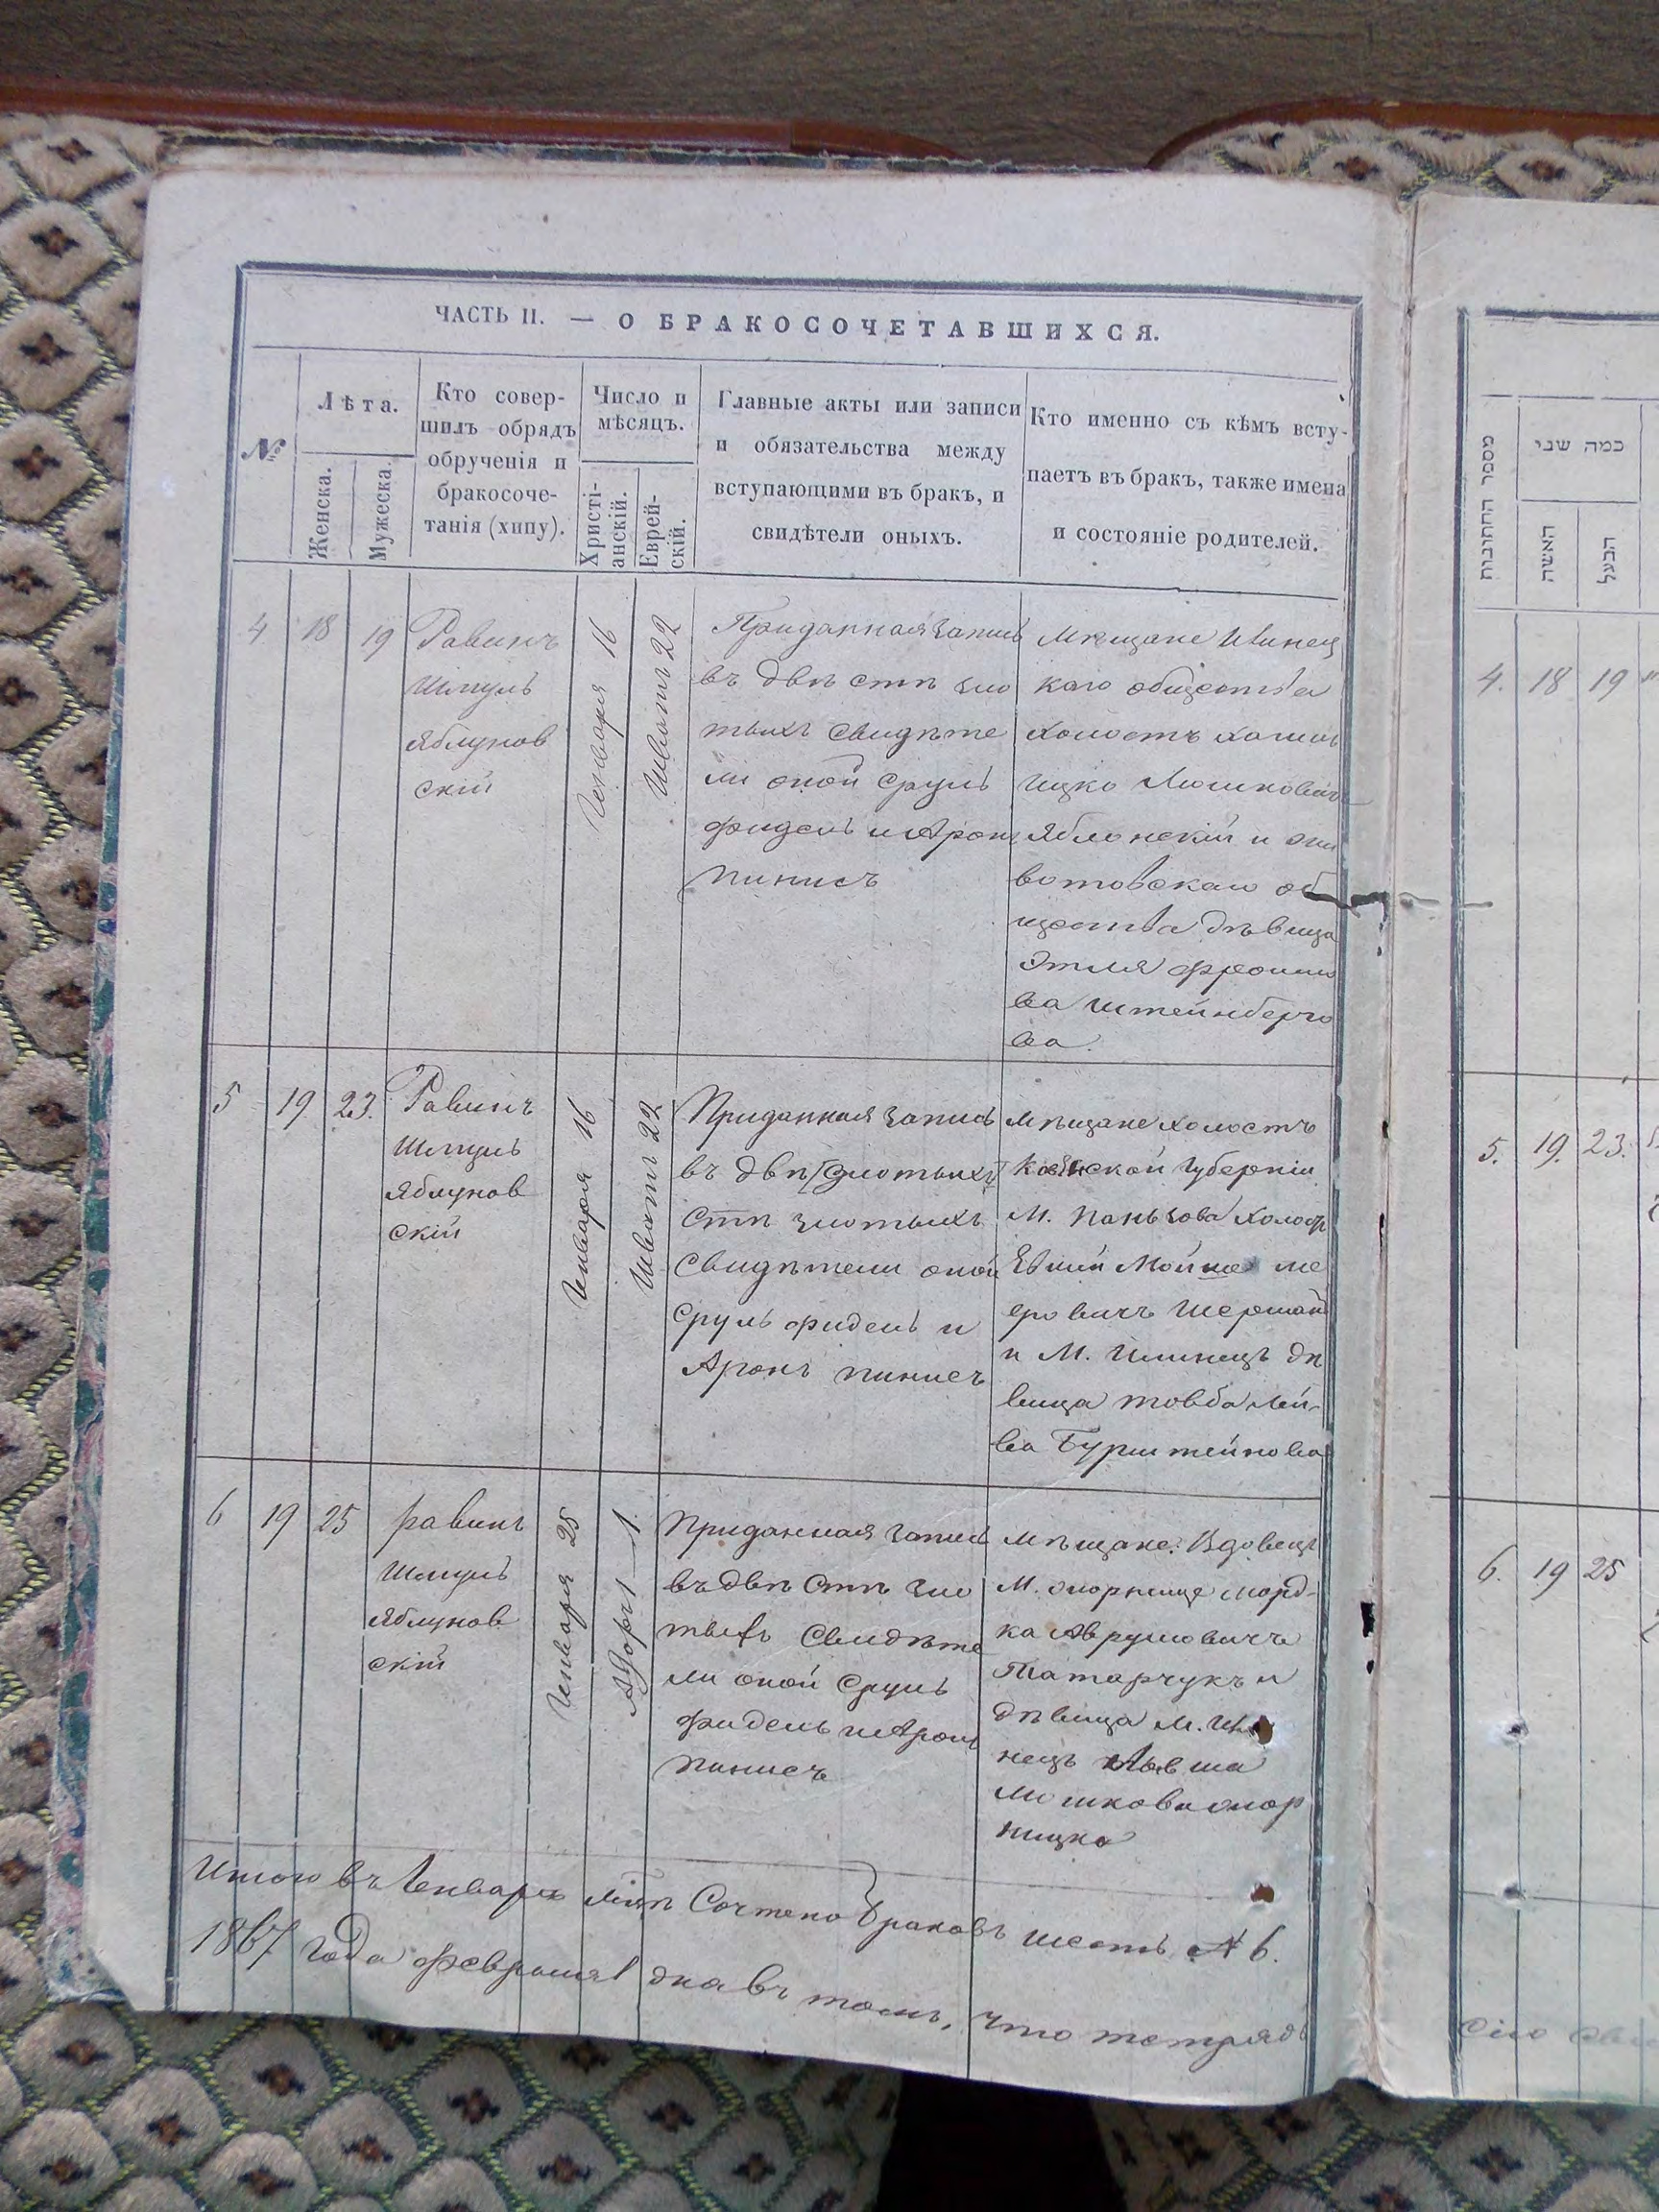 ЧАСТЬ II. — О БРАКОСОЧЕТАВШИХСЯ.
№
Лѣта.
Женска.
Мужеска.
Кто совер-
шилъ обрядъ
обрученія и
бракосоче-
танія (хипу).
Число и
мѣсяцъ.
Христі-
анскій.
Еврей-
скій.
Главные акты или записи
и обязательства между
вступающими въ бракъ, и
свидѣтели оныхъ.
Кто именно съ кѣмъ всту-
паетъ въ бракъ, также имена
и состояніе родителей.
4 18 19
Равинъ
Шмуль
Яблунов
скій
Генваря 16
Шватъ 22
Приданная запись
въ двѣ стѣ зло
тыхъ свидѣте
ли оной Сруль
Фидель и Аронъ
Пинисъ
Мѣщане Илинец
каго общества
холостъ
Ицко Мошковичъ
Яблонскій и Жи
вотовскаго об
щества дѣвица
Этля Фроимо
ва Штейнберго
ва.
5 19 23.
Равинъ
Шмуль
Яблунов
скій
Генваря 16
Шватъ 22
Приданная запись
въ двѣ [злотыхъ]
стѣ злотыхъ
свидѣтели оной
Сруль Фидель и
Аронъ Пинисъ
Мѣщане холостъ
губерніи
М.
Мойше Ме
еровичъ Шерман
и М. Илинецъ дѣ
вица Товба Лей-
ва Бурштейнова
6 19 25
равинъ
Шмуль
Яблунов
скій
Генваря 25
Адоръ 1 — 1
Приданная запись
въ двѣ стѣ зло
тыхъ свидѣте
ли оной Сруль
Фидель и Аронъ
Пинисъ
Мѣщане: Вдовецъ
М. Морд-
ка Аврумовичъ
Татарчукъ и
дѣвица М. Или
нецъ
Мошкова
ницка
Итого въ Генварѣ м͠цѣ сочтено браковъ шесть № 6.
1867 года февраля 1 дна въ томъ, что тетрадь
מספר החתונות
כמה שני
האשה
הבעל
4. 18 19
5. 19. 23.
6. 19 25